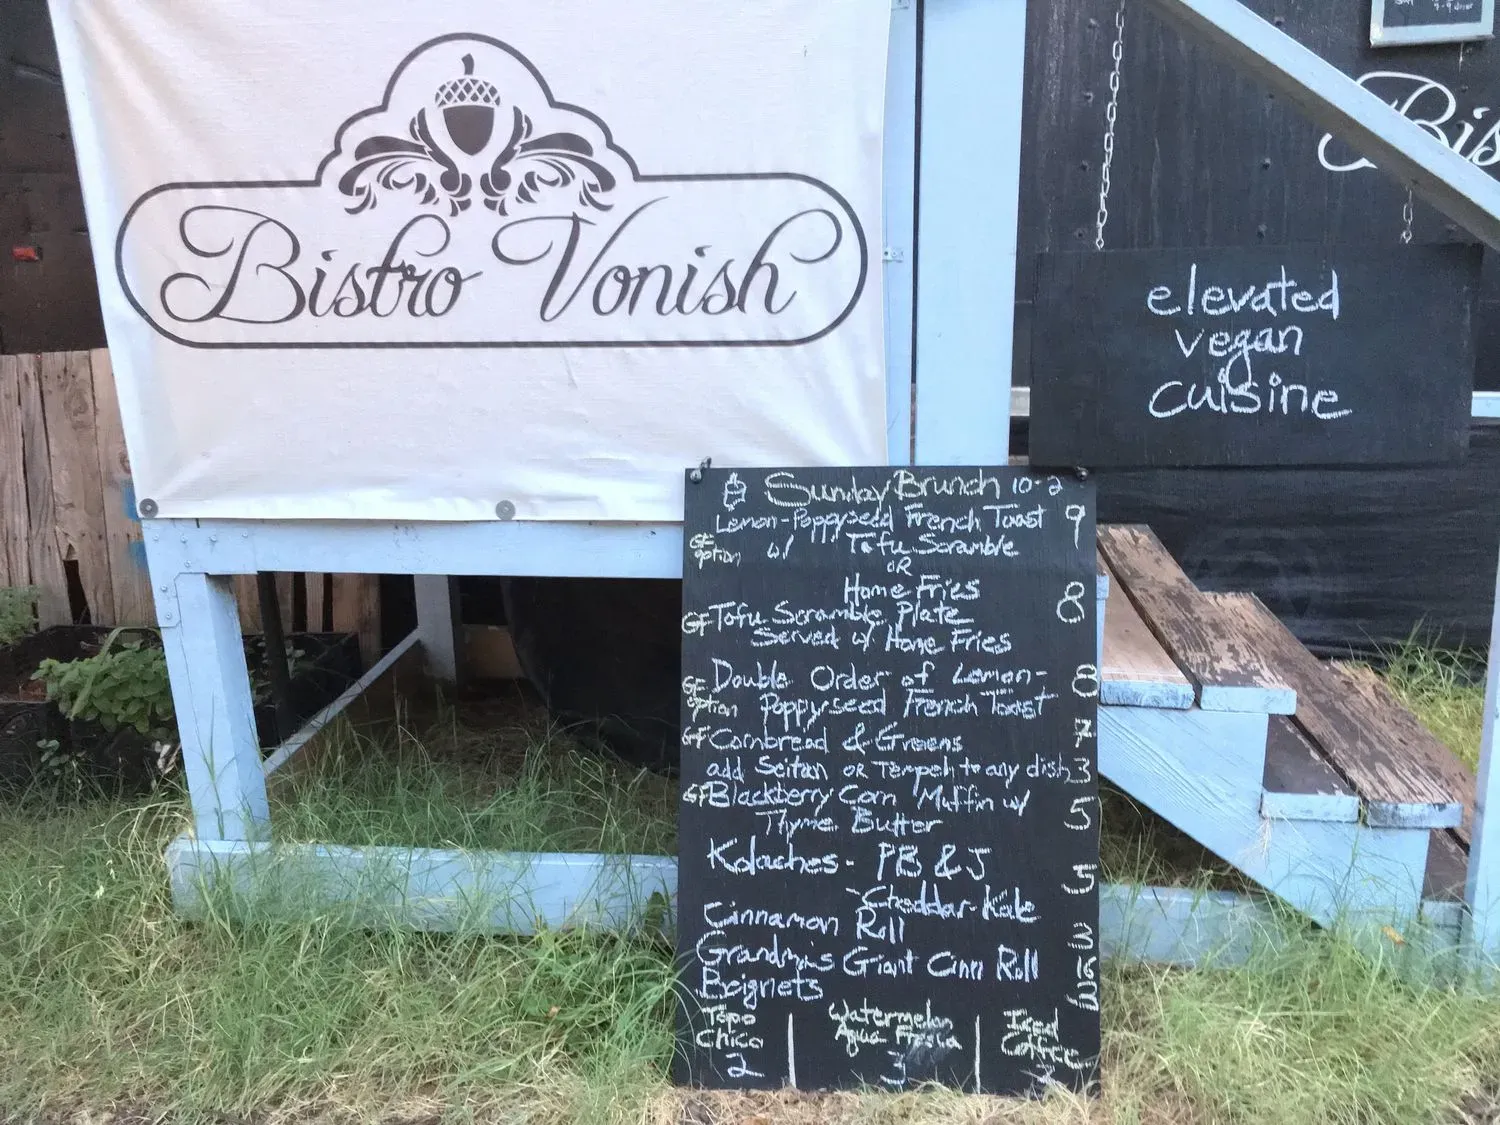 Bistro Vonish
Bis
elevated
vegan
cuisine
Sunday Brunch 10-2
Lemon-Poppyseed French Toast 9
GF option w/ Tofu Scramble
OR
Home Fries
GF Tofu Scramble Plate 8
Served w/ Home Fries
GF option Double Order of Lemon- 8
Poppyseed French Toast
GF Cornbread & Greens 7
add Seitan or Tempeh to any dish 3
GF Blackberry Corn Muffin w/
Thyme Butter 5
Kolaches - PB & J 5
- Cheddar-Kale
Cinnamon Roll 3
Grandma's Giant Cinn Roll 16
Beignets 3
Topo Chico 2
Watermelon Agua Fresca 3
Iced Coffee